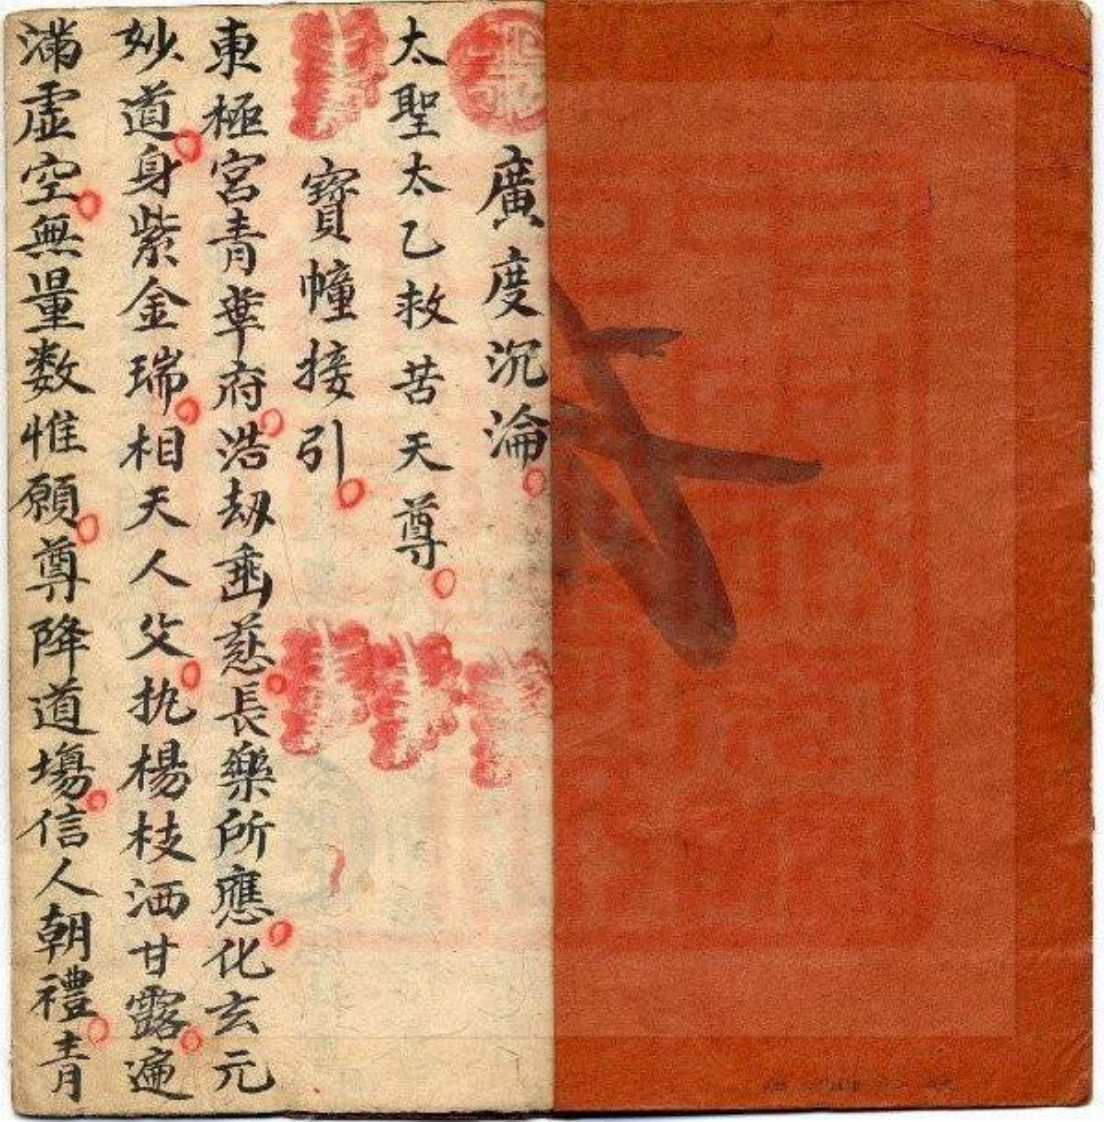 廣度沉淪
太聖太乙救苦天尊
寶幢接引
東極宮青華府浩劫垂慈長樂所應化玄元
妙道身紫金瑞相天人父执楊枝洒甘露遍
滿虛空無量数惟願尊降道塲信人朝禮青